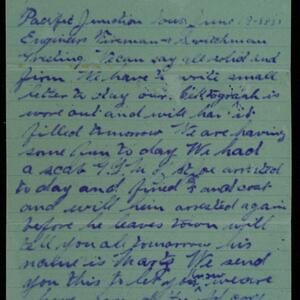 Pacific Junction Iowa June
Engineers Fireman & Switchman
Greeting We can say all solid and
firm We have to write small
letter to day our Hektograph is
wore out and will has it
filled tomorrow We are having
some fun to day We had
a scab Y.F.M. arrested
to day and fined and cost
and will him arrested again
before he leaves town will
tell you all tomorrow his
name is We send
you this to let you know we are